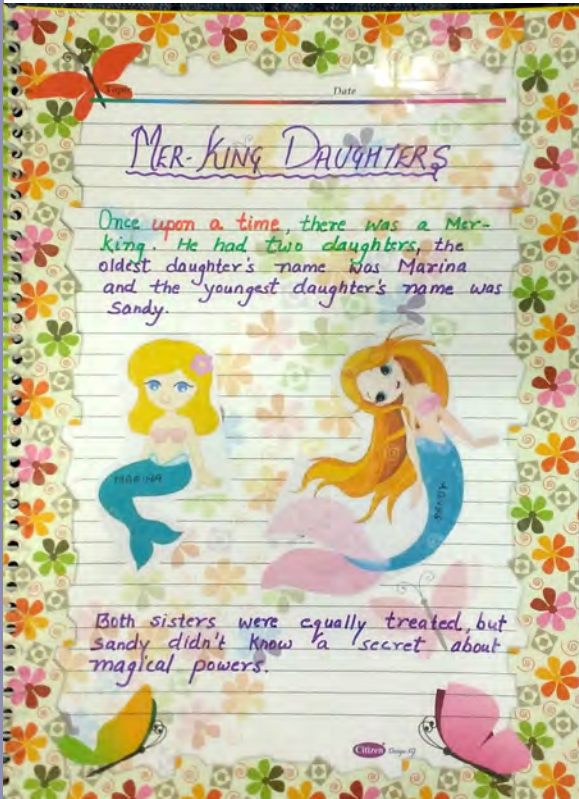 Topic Date
MER-KING DAUGHTERS
Once upon a time, there was a Mer-
king. He had two daughters, the
oldest daughter's name was Marina
and the youngest daughter's name was
Sandy.
MARINA
SANDY
Both sisters were equally treated, but
Sandy didn't know a secret about
magical powers.
Citizen